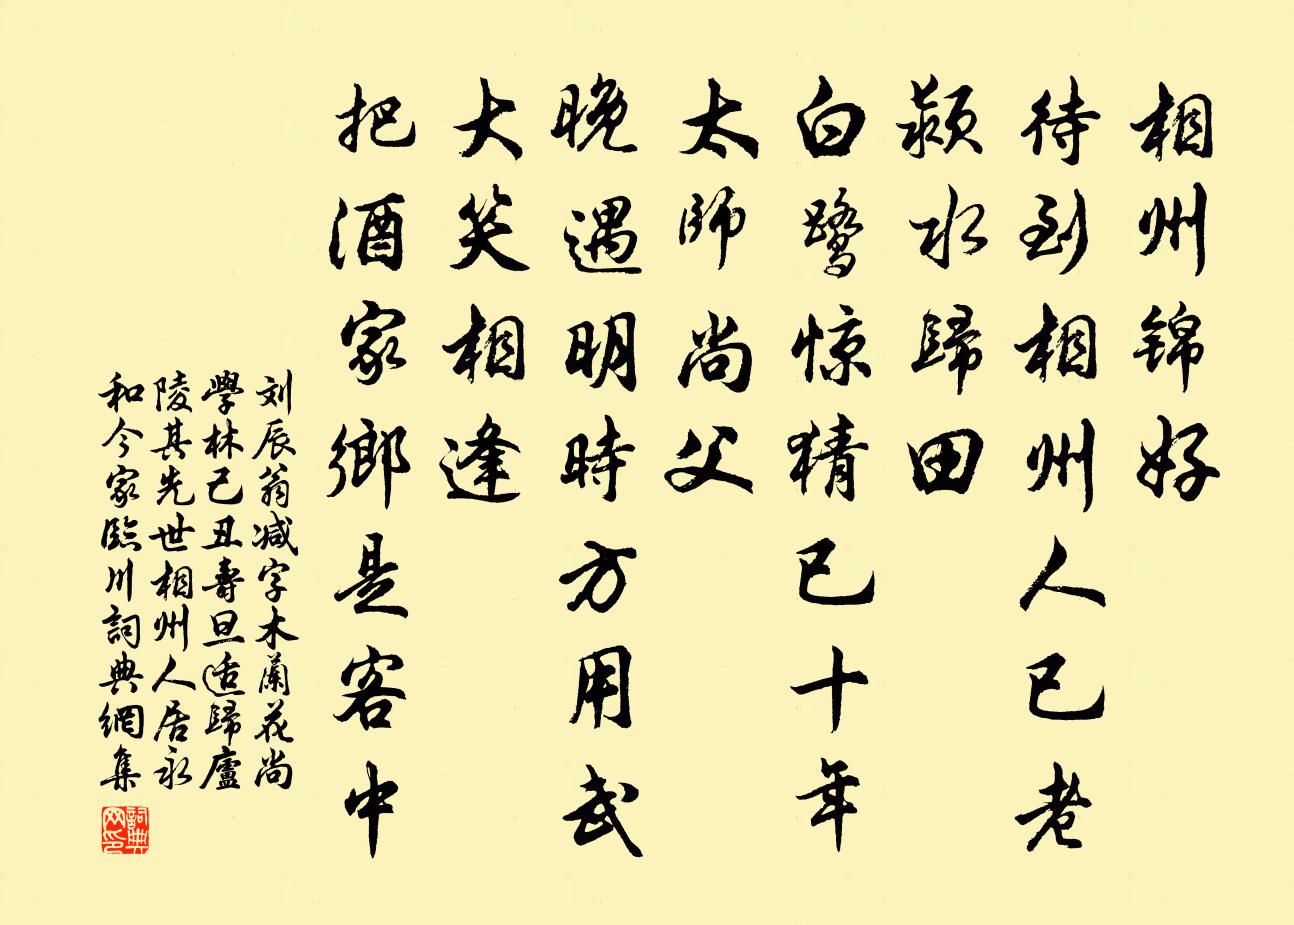 相州锦好
待到相州人已老
颍水歸田
白鹭惊猜已十年
太師尚父
晚遇明時方用武
大笑相逢
把酒家鄉是客中
刘辰翁减字木蘭花尚
學林己丑壽旦适歸廬
陵其先世相州人居永
和今家臨川詞典網集
詞典
网印